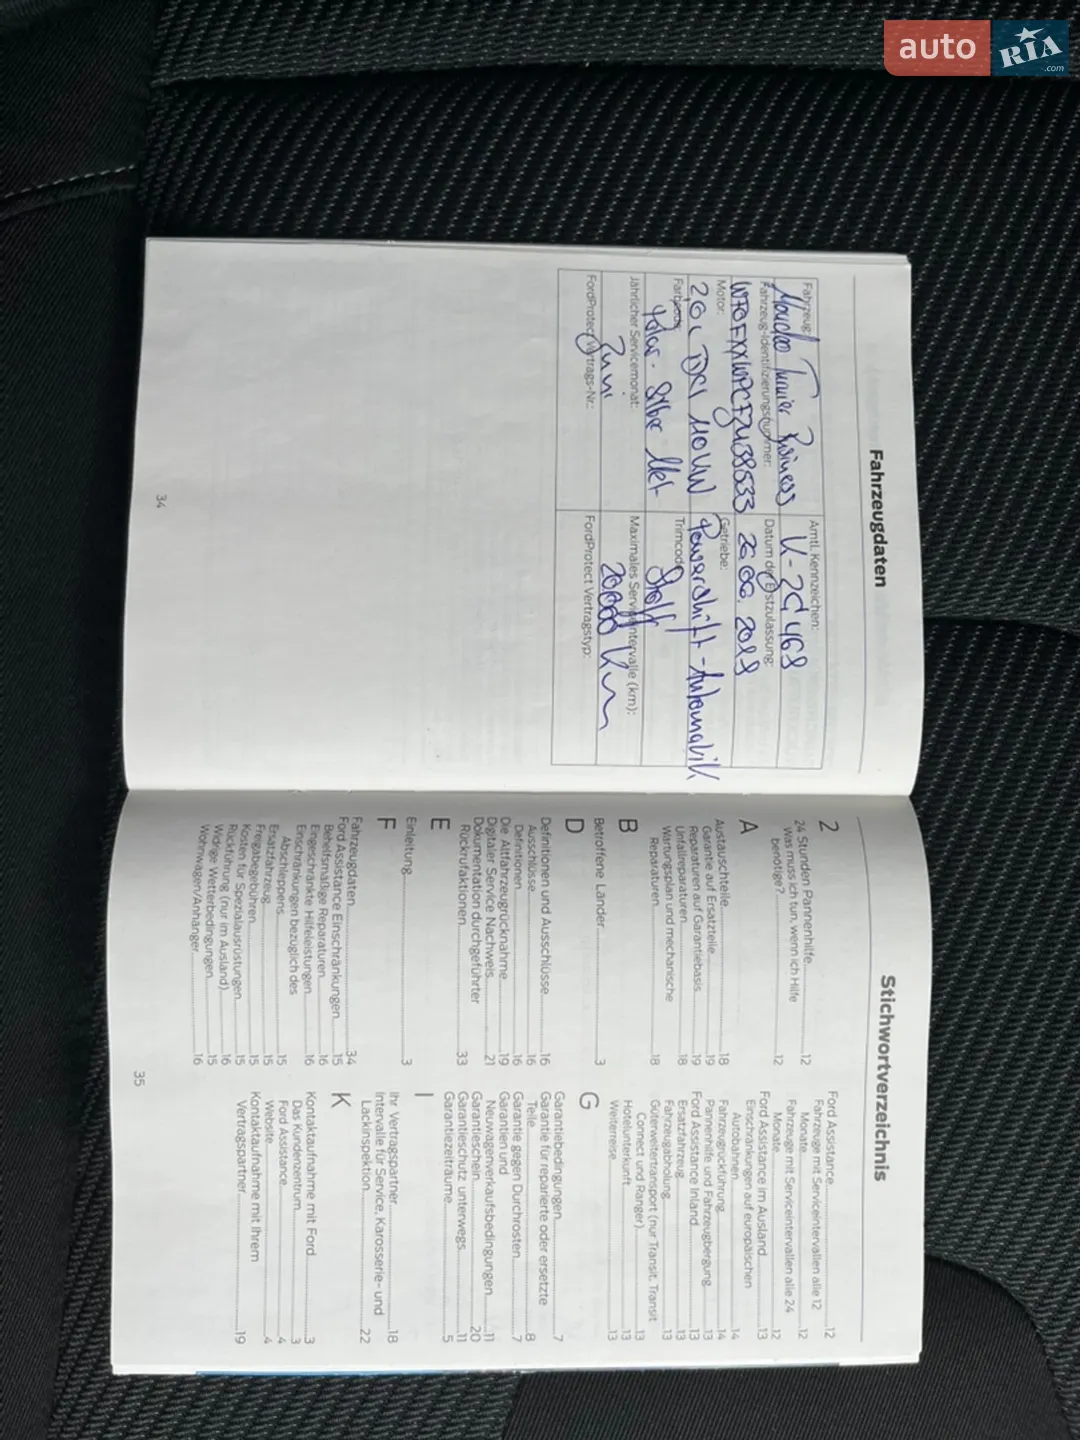 auto RIA.com
Fahrzeugdaten
Fahrzeug:
Mondeo Turnier Business
Amtl. Kennzeichen:
Fahrzeug-Identifizierungsnummer:
Datum der Erstzulassung:
Motor:
2,0L TDCI 110KW
Getriebe:
Powershift-Automatik
Farbcode:
Polar-Silber Met
Trimcode:
Stoff
Jährlicher Servicemonat:
Juni
Maximales Serviceintervalle (km):
20000 Km
FordProtect Vertrags-Nr.:
FordProtect Vertragstyp:
34
Stichwortverzeichnis
2
24 Stunden Pannenhilfe..........12
Was muss ich tun, wenn ich Hilfe
benötige?..........12
A
Austauschteile..........18
Garantie auf Ersatzteile..........19
Reparaturen auf Garantiebasis..........19
Unfallreparaturen..........18
Wartungsplan und mechanische
Reparaturen..........18
B
Betroffene Länder..........3
D
Definitionen und Ausschlüsse..........16
Ausschlüsse..........16
Definitionen..........16
Die Altfahrzeugrücknahme..........19
Digitaler Service Nachweis..........21
Dokumentation durchgeführter
Rückrufaktionen..........33
E
Einleitung..........3
F
Fahrzeugdaten..........34
Ford Assistance Einschränkungen..........15
Behelfsmäßige Reparaturen..........16
Eingeschränkte Hilfeleistungen..........16
Einschränkungen bezüglich des
Abschleppens..........15
Ersatzfahrzeug..........15
Freigabegebühren..........15
Kosten für Spezialausrüstungen..........15
Rückführung (nur im Ausland)..........16
Widrige Wetterbedingungen..........15
Wohnwagen/Anhänger..........16
Ford Assistance..........12
Fahrzeuge mit Serviceintervallen alle 12
Monate..........12
Fahrzeuge mit Serviceintervallen alle 24
Monate..........12
Ford Assistance im Ausland..........13
Einschränkungen auf europäischen
Autobahnen..........14
Fahrzeugrückführung..........14
Pannenhilfe und Fahrzeugbergung..........13
Ford Assistance Inland..........13
Ersatzfahrzeug..........13
Fahrzeugabholung..........13
Güterweitertransport (nur Transit, Transit
Connect und Ranger)..........13
Hotelunterkunft..........13
Weiterreise..........13
G
Garantiebedingungen..........7
Garantie für reparierte oder ersetzte
Teile..........8
Garantie gegen Durchrosten..........7
Garantien und
Neuwagenverkaufsbedingungen..........11
Garantieschein..........20
Garantieschutz unterwegs..........11
Garantiezeiträume..........5
I
Ihr Vertragspartner..........18
Intervalle für Service, Karosserie- und
Lackinspektion..........22
K
Kontaktaufnahme mit Ford..........3
Das Kundenzentrum..........3
Ford Assistance..........4
Website..........4
Kontaktaufnahme mit Ihrem
Vertragspartner..........19
35